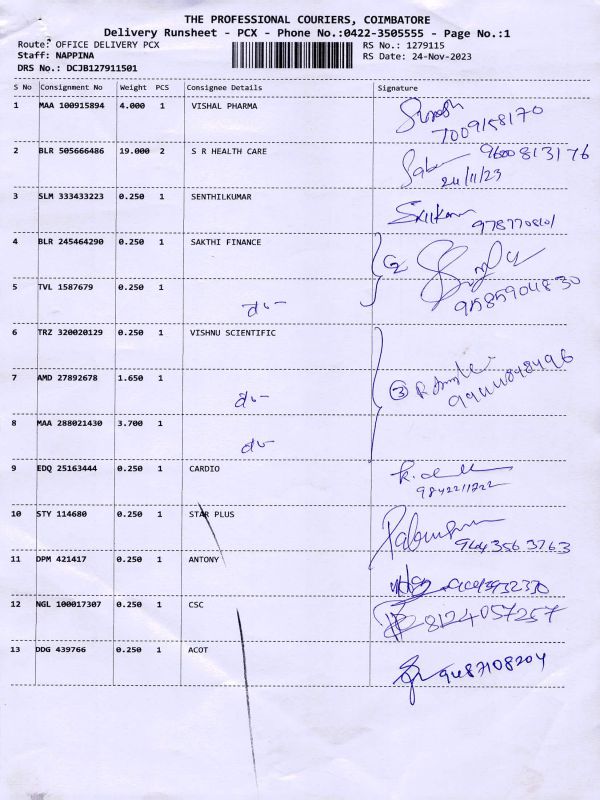 THE PROFESSIONAL COURIERS, COIMBATORE
Delivery Runsheet - PCX - Phone No.:0422-3505555 - Page No.:1
Route: OFFICE DELIVERY PCX RS No.: 1279115
Staff: NAPPINA RS Date: 24-Nov-2023
DRS No.: DCJB127911501
S No Consignment No Weight PCS Consignee Details Signature
1 MAA 100915894 4.000 1 VISHAL PHARMA
7009158170
2 BLR 505666486 19.000 2 S R HEALTH CARE 9600813176
24/11/23
3 SLM 333433223 0.250 1 SENTHILKUMAR
4 BLR 245464290 0.250 1 SAKTHI FINANCE
5 TVL 1587679 0.250 1
6 TRZ 320020129 0.250 1 VISHNU SCIENTIFIC
7 AMD 27892678 1.650 1 3
8 MAA 288021430 3.700 1
9 EDQ 25163444 0.250 1 CARDIO
10 STY 114680 0.250 1 STAR PLUS
11 DPM 421417 0.250 1 ANTONY
12 NGL 100017307 0.250 1 CSC 8124057257
13 DDG 439766 0.250 1 ACOT 9487108204